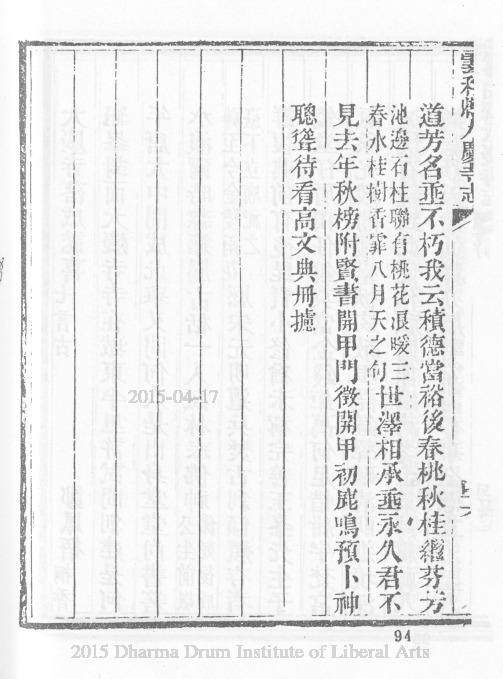 道芳名垂不朽我云積德當裕後春桃秋桂繼芬芳
池邊石柱聯有桃花浪暖三
春水桂樹香霏八月天之句
世澤相承垂永久君不
見去年秋榜附賢書開甲門徵開甲初鹿鳴預卜神
聰聳待看高文典冊攄
2015-04-17
94
2015 Dharma Drum Institute of Liberal Arts